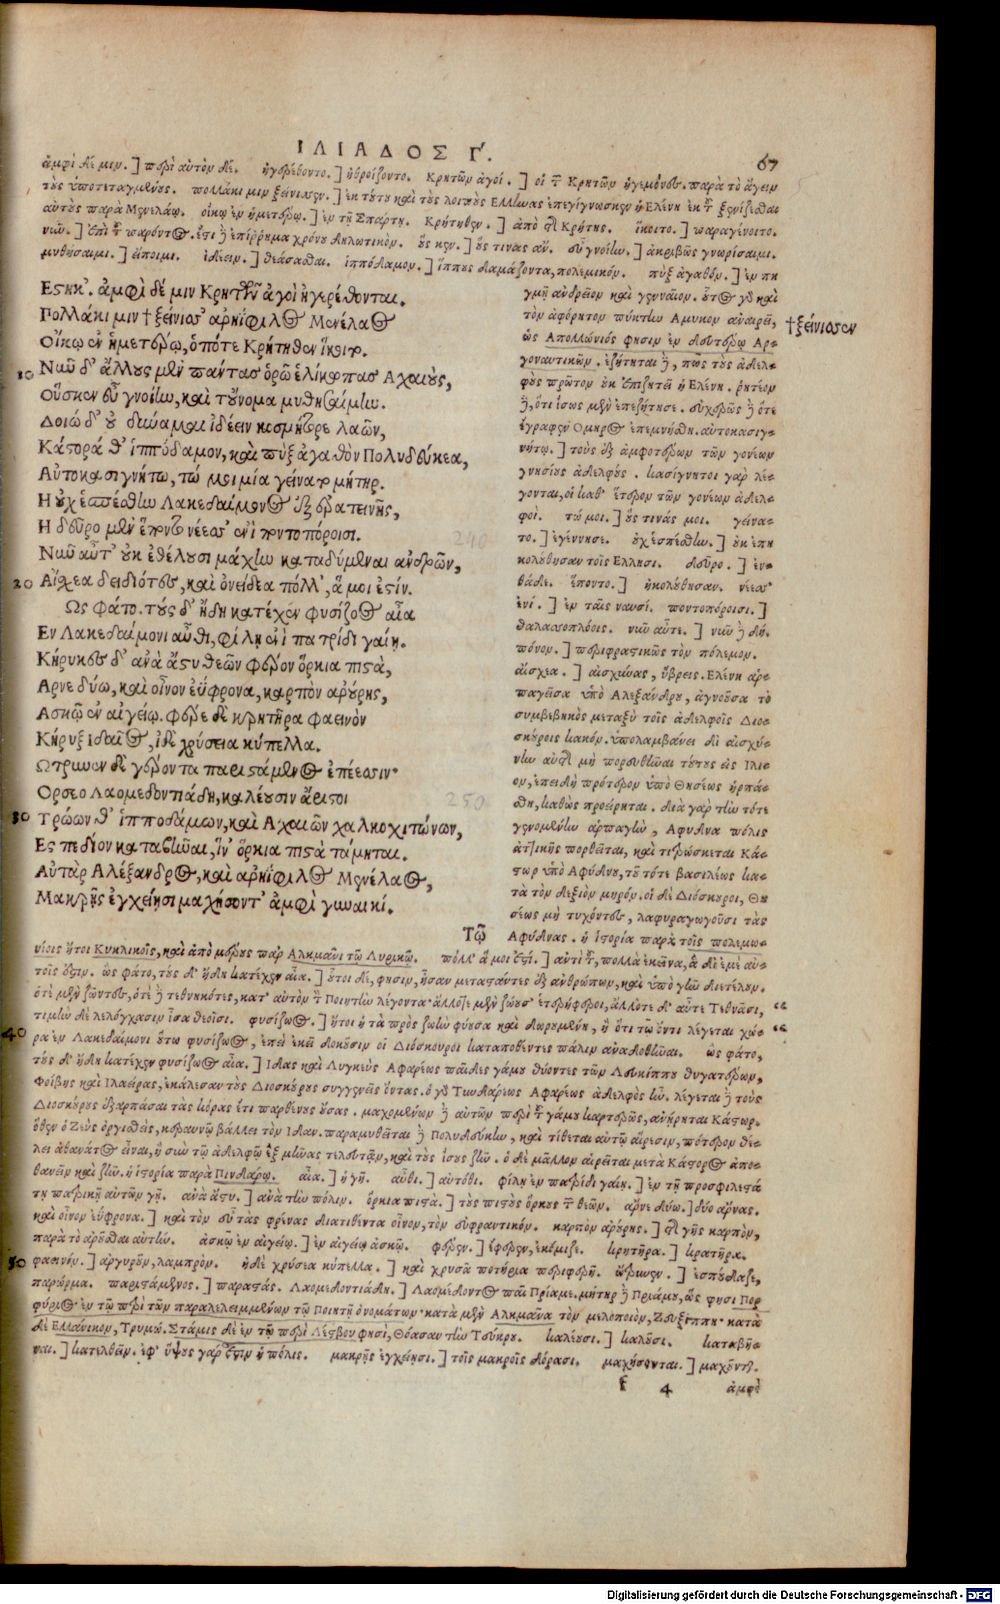 ΙΛΙΑΔΟΣ Γ. 67
ἀμφὶ δέ μιν. ] περὶ αὐτὸν δέ. ἠγερέθοντο. ] ἠθροίζοντο. Κρητῶν ἀγοί. ] οἱ τῶν Κρητῶν ἡγεμόνες. παρὰ τὸ ἄγειν
τοὺς ὑποτεταγμένους. πολλάκι μιν ξείνισεν. ] ἐκ τούτου καὶ τοὺς λοιποὺς Ελλήνας ἐπεγίγνωσκεν ἡ Ελένη ἐκ τοῦ ξενίζεσθαι
αὐτοὺς παρὰ Μενελάῳ. οἴκῳ ἐν ἡμετέρῳ. ] ἐν τῇ Σπάρτῃ. Κρήτηθεν. ] ἀπὸ τῆς Κρήτης. ἵκοιτο. ] παραγένοιτο.
νῦν. ] ἐπὶ τοῦ παρόντος. ἔστι δὲ ἐπίρρημα χρόνου δηλωτικόν. οὕς κεν. ] οὕς τινας ἄν. εὖ γνοίην. ] ἀκριβῶς γνωρίσαιμι.
μυθήσαιμι. ] εἴποιμι. ἰδέειν. ] θεάσασθαι. ἱππόδαμον. ] ἵππους δαμάζοντα, πολεμικόν. πὺξ ἀγαθόν. ] ἐν πυ
Εστηκ'. ἀμφὶ δέ μιν Κρητῶν ἀγοὶ ἠγερέθονται.
Πολλάκι μιν † ξείνιας' ἀρηΐφιλος Μενέλαος
Οἴκῳ ἐν ἡμετέρῳ, ὁπότε Κρήτηθεν ἵκοιτο.
10 Νῦν δ' ἄλλους μὲν πάντας ὁρῶ ἑλίκωπας Αχαιοὺς,
Οὕς κεν εὖ γνοίην, καὶ τοὔνομα μυθησαίμην.
Δοιὼ δ' οὐ δύναμαι ἰδέειν κοσμήτορε λαῶν,
Κάστορά θ' ἱππόδαμον, καὶ πὺξ ἀγαθὸν Πολυδεύκεα,
Αὐτοκασιγνήτω, τώ μοι μία γείνατο μήτηρ.
Η οὐχ ἑσπέσθην Λακεδαίμονος ἐξ ἐρατεινῆς,
Η δεῦρο μὲν ἕποντο νέεσσ' ἐνὶ ποντοπόροισι. 240
Νῦν αὖτ' οὐκ ἐθέλουσι μάχην καταδύμεναι ἀνδρῶν,
20 Αἴσχεα δειδιότες, καὶ ὀνείδεα πόλλ', ἅ μοι ἐστίν.
Ως φάτο. τοὺς δ' ἤδη κατέχεν φυσίζοος αἶα
Εν Λακεδαίμονι αὖθι, φίλῃ ἐνὶ πατρίδι γαίῃ.
Κήρυκες δ' ἀνὰ ἄστυ θεῶν φέρον ὅρκια πιστὰ,
Αρνε δύω, καὶ οἶνον ἐΰφρονα, καρπὸν ἀρούρης,
Ασκῷ ἐν αἰγείῳ. φέρε δὲ κρητῆρα φαεινὸν
Κήρυξ Ιδαῖος, ἰδὲ χρύσεια κύπελλα.
Ωτρυνεν δὲ γέροντα παριστάμενος ἐπέεσσιν·
Ορσεο Λαομεδοντιάδη, καλέουσιν ἄριστοι 250
30 Τρώων θ' ἱπποδάμων, καὶ Αχαιῶν χαλκοχιτώνων,
Ες πεδίον καταβῆναι, ἵν' ὅρκια πιστὰ τάμηται.
Αὐτὰρ Αλέξανδρος, καὶ ἀρηΐφιλος Μενέλαος,
Μακρῇς ἐγχείῃσι μαχήσοντ' ἀμφὶ γυναικί.
Τῷ
γμῇ ἀνδρεῖον καὶ γενναῖον. οὗτος γὰρ καὶ
τὸν ἀφόρητον πύκτην Αμυκον ἀναιρεῖ,
† ξείνισσεν
ὡς Απολλώνιός φησιν ἐν δευτέρῳ Αρ-
γοναυτικῶν. ἐζήτηται δὲ, πῶς τοὺς ἀδελ-
φοὺς πρῶτον οὐκ ἐπιζητεῖ ἡ Ελένη. ῥητέον
δὲ, ὅτι ἴσως μὲν ἐπεζήτησε. συχρῶς δὲ ὅτε
ἔγραφεν Ομηρος ἐπεμνήσθη. αὐτοκασιγ-
νήτω. ] τοὺς ἐξ ἀμφοτέρων τῶν γονέων
γνησίους ἀδελφούς. κασίγνητοι γὰρ λέ-
γονται, οἱ καθ' ἕτερον τῶν γονέων ἀδελ-
φοί. τώ μοι. ] οὕς τινάς μοι. γείνα-
το. ] ἐγέννησε. οὐχ ἑσπέσθην. ] οὐκ ἐπη
κολούθησαν τοῖς Ελλησι. δεῦρο. ] ἐν-
θάδε. ἕποντο. ] ἠκολούθησαν. νέεσσ'
ἐνί. ] ἐν ταῖς ναυσί. ποντοπόροισι. ]
θαλασσοπλόοις. νῦν αὖτε. ] νῦν δὲ δή.
πόνον. ] περιφραστικῶς τὸν πόλεμον.
αἴσχεα. ] αἰσχύνας, ὕβρεις. Ελένη ἁρ-
παγεῖσα ὑπὸ Αλεξάνδρου, ἀγνοοῦσα τὸ
συμβεβηκὸς μεταξὺ τοῖς ἀδελφοῖς Διο-
σκούροις κακόν. ὑπολαμβάνει δι' αἰσχύ-
νην αὐτῆς μὴ πορευθῆναι τούτους εἰς Ιλι-
ον, ἐπειδὴ πρότερον ὑπὸ Θησέως ἡρπά-
σθη, καθὼς προείρηται. διὰ γὰρ τὴν τότε
γενομένην ἁρπαγὴν, Αφυδνα πόλις
ἀττικῆς πορθεῖται, καὶ τιτρώσκεται Κά-
στωρ ὑπὸ Αφύδνου, τοῦ τότε βασιλέως κα-
τὰ τὸν δεξιὸν μηρόν. οἱ δὲ Διόσκουροι, Θη
σέως μὴ τυχόντες, λαφυραγωγοῦσι τὰς
Αφύδνας. ἡ ἱστορία παρὰ τοῖς πολεμω-
νίοις ἤτοι Κυκλικοῖς, καὶ ἀπὸ μέρους παρ' Αλκμᾶνι τῷ Λυρικῷ. πόλλ' ἅ μοι ἐστί. ] ἀντὶ τοῦ, πολλὰ ἐκεῖνα, ἃ δι' ἐμὲ αὐ-
τοῖς ἐστιν. ὡς φάτο, τοὺς δ' ἤδη κατέχεν αἶα. ] οὗτοι δὲ, φησιν, ἦσαν μεταστάντες ἐξ ἀνθρώπων, καὶ ὑπὸ γῆν διετέλουν.
ὁτὲ μὲν ζῶντες, ὁτὲ δὲ τεθνηκότες, κατ' αὐτὸν τὸν Ποιητὴν λέγοντα· ἄλλοτε μὲν ζώουσ' ἑτερήμεροι, ἄλλοτε δ' αὖτε Τεθνᾶσι, “
τιμὴν δὲ λελόγχασιν ἶσα θεοῖσι. φυσίζοος. ] ἤτοι ἡ τὰ πρὸς ζωὴν φύουσα καὶ δωρουμένη, ἢ ὅτι τῷ ὄντι λέγεται χώ- “
40 ρα ἐν Λακεδαίμονι οὕτω φυσίζοος, ἐπεὶ ἐκεῖ δοκοῦσιν οἱ Διόσκουροι καταποθέντες πάλιν ἀναδοθῆναι. ὡς φάτο,
τοὺς δ' ἤδη κατέχεν φυσίζοος αἶα. ] Ιδας καὶ Λυγκεὺς Αφαρέως παῖδες γάμου θύοντες τῶν Λευκίππου θυγατέρων,
Φοίβης καὶ Ιλαείρας, ἐκάλεσαν τοὺς Διοσκούρους συγγενεῖς ὄντας. ὁ γὰρ Τυνδάρεως Αφαρέως ἀδελφὸς ἦν. λέγεται δὲ τοὺς
Διοσκούρους ἐξαρπάσαι τὰς κόρας ἔτι παρθένους οὔσας. μαχομένων δὲ αὐτῶν περὶ τοῦ γάμου καρτερῶς, ἀνῄρηται Κάστωρ.
ὅθεν ὁ Ζεὺς ὀργισθεὶς, κεραυνῷ βάλλει τὸν Ιδαν. παραμυθεῖται δὲ Πολυδεύκην, καὶ τίθεται αὐτῷ αἵρεσιν, πότερον θέ-
λει ἀθανάτος εἶναι, ἢ σὺν τῷ ἀδελφῷ ἓξ μῆνας τελευτᾶν, καὶ τοὺς ἴσους ζῆν. ὁ δὲ μᾶλλον αἱρεῖται μετὰ Κάστορος ἀπο-
θανεῖν καὶ ζῆν. ἡ ἱστορία παρὰ Πινδάρῳ. αἶα. ] ἡ γῆ. αὖθι. ] αὐτόθι. φίλῃ ἐν πατρίδι γαίῃ. ] ἐν τῇ προσφιλεστά
τῃ πατρικῇ αὐτῶν γῇ. ἀνὰ ἄστυ. ] ἀνὰ τὴν πόλιν. ὅρκια πιστά. ] τοὺς πιστοὺς ὅρκους τῶν θεῶν. ἄρνε δύω. ] δύο ἄρνας.
καὶ οἶνον εὔφρονα. ] καὶ τὸν εὖ τὰς φρένας διατιθέντα οἶνον, τὸν εὐφραντικόν. καρπὸν ἀρούρης. ] τῆς γῆς καρπὸν,
παρὰ τὸ ἀροῦσθαι αὐτήν. ἀσκῷ ἐν αἰγείῳ. ] ἐν αἰγείῳ ἀσκῷ. φέρεν. ] ἔφερεν, ἐκόμιζε. κρητῆρα. ] κρατῆρα.
50 φαεινόν. ] ἀργυροῦν, λαμπρόν. ἠδὲ χρύσεια κύπελλα. ] καὶ χρυσᾶ ποτήρια περιφερῆ. ὤτρυνεν. ] ἐσπούδαζε,
παρώρμα. παριστάμενος. ] παραστάς. Λαομεδοντιάδη. ] Λαομέδοντος παῖ Πρίαμε. μήτηρ δὲ Πριάμου, ὥς φησι Πορ
φύριος ἐν τῷ περὶ τῶν παραλελειμμένων τῷ Ποιητῇ ὀνομάτων· κατὰ μὲν Αλκμᾶνα τὸν μελοποιὸν, Ζευξίππη· κατὰ
δὲ Ελλάνικον, Τρυμώ. Στάμις δὲ ἐν τῷ περὶ Λέσβου φησὶ, Θόασαν τὴν Τεύκρου. καλέουσι. ] καλοῦσι. καταβῆ-
ναι. ] κατελθεῖν. ἐφ' ὕψους γάρ ἐστιν ἡ πόλις. μακρῇς ἐγχείῃσι. ] τοῖς μακροῖς δόρασι. μαχήσονται. ] μαχοῦνται.
f 4 ἀμφὶ
Digitalisierung gefördert durch die Deutsche Forschungsgemeinschaft - DFG